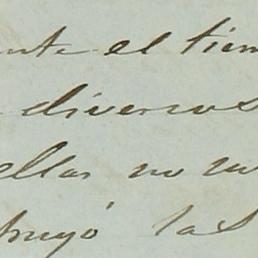 ente el tiem
diversos
ellas no
truyó las